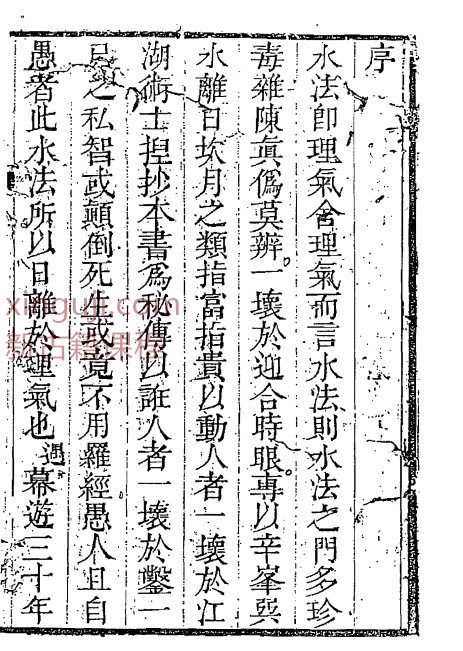 序
水法卽理氣舍理氣而言水法則水法之門多珍
毒雜陳眞僞莫辨。一壞於迎合時眼。專以辛峯㢲
水離日坎月之類指富指貴以動人者一壞於江
湖術士捏抄本書爲祕傳以誑人者一壞於鑿一
己之私智或顛倒死生或竟不用羅經愚人且自
愚者此水法所以日離於理氣也遇幕遊三十年
xinguji.com
新古籍课程